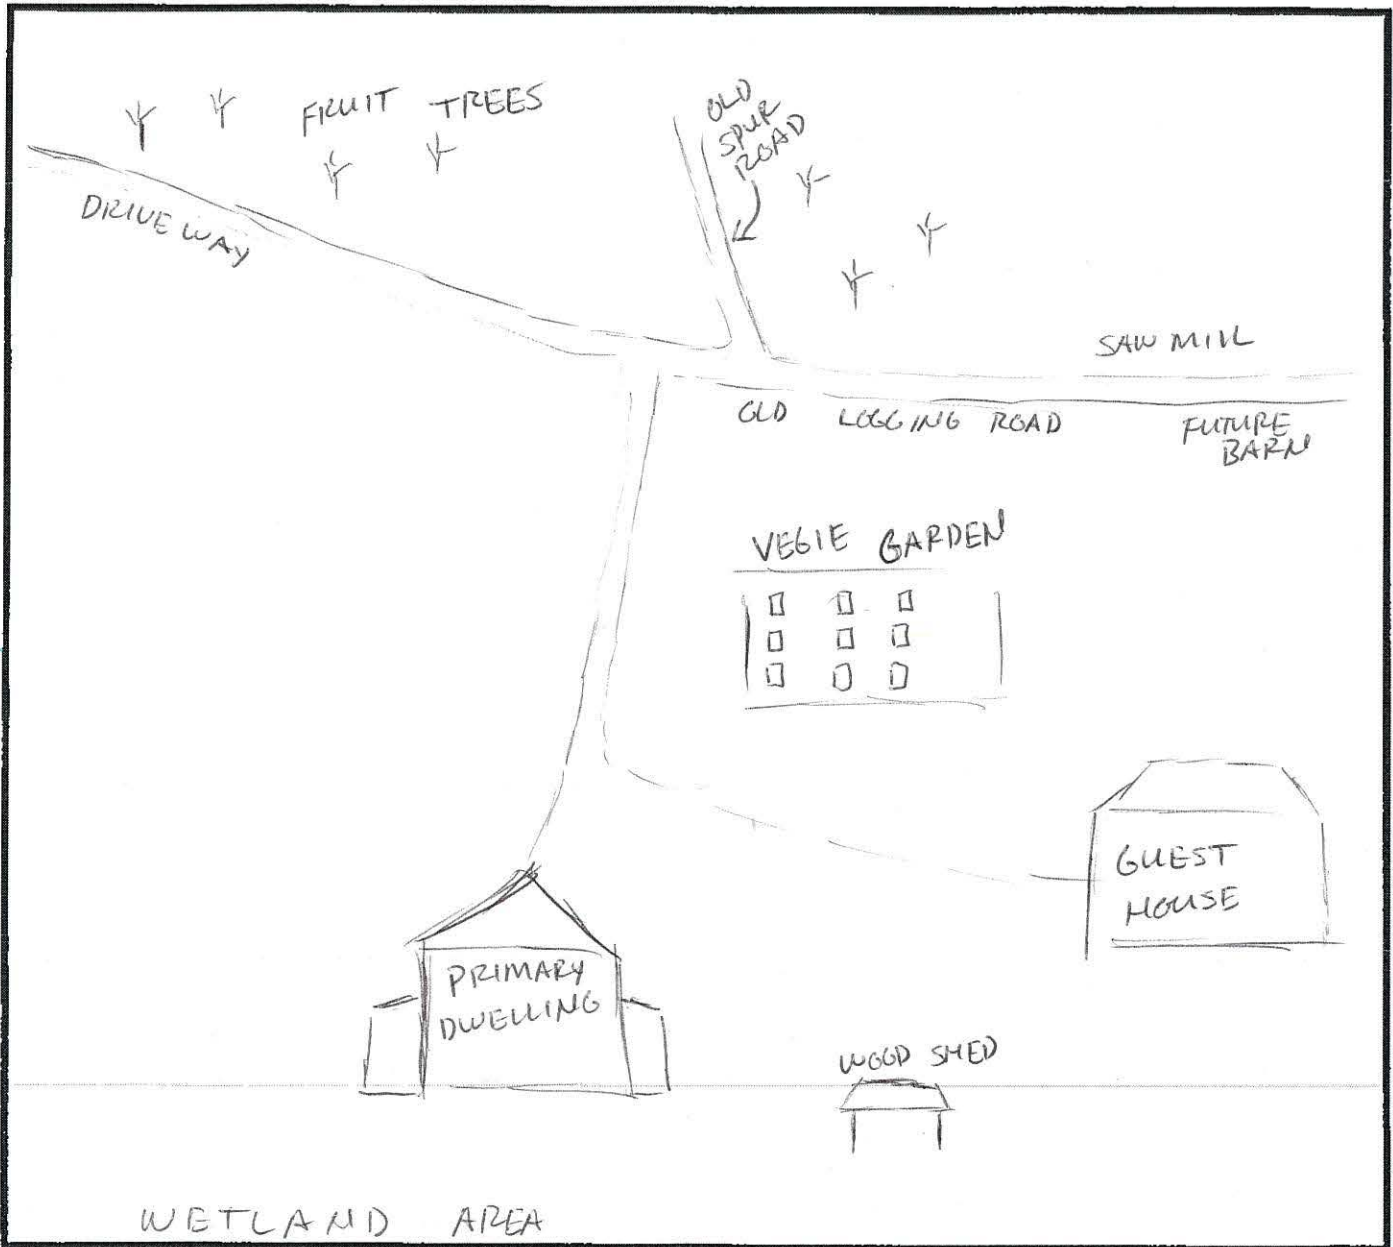 FRUIT TREES
OLD
SPUR
ROAD
DRIVEWAY
SAW MILL
OLD LOGGING ROAD
FUTURE
BARN
VEGIE GARDEN
GUEST
HOUSE
PRIMARY
DWELLING
WOOD SHED
WETLAND AREA